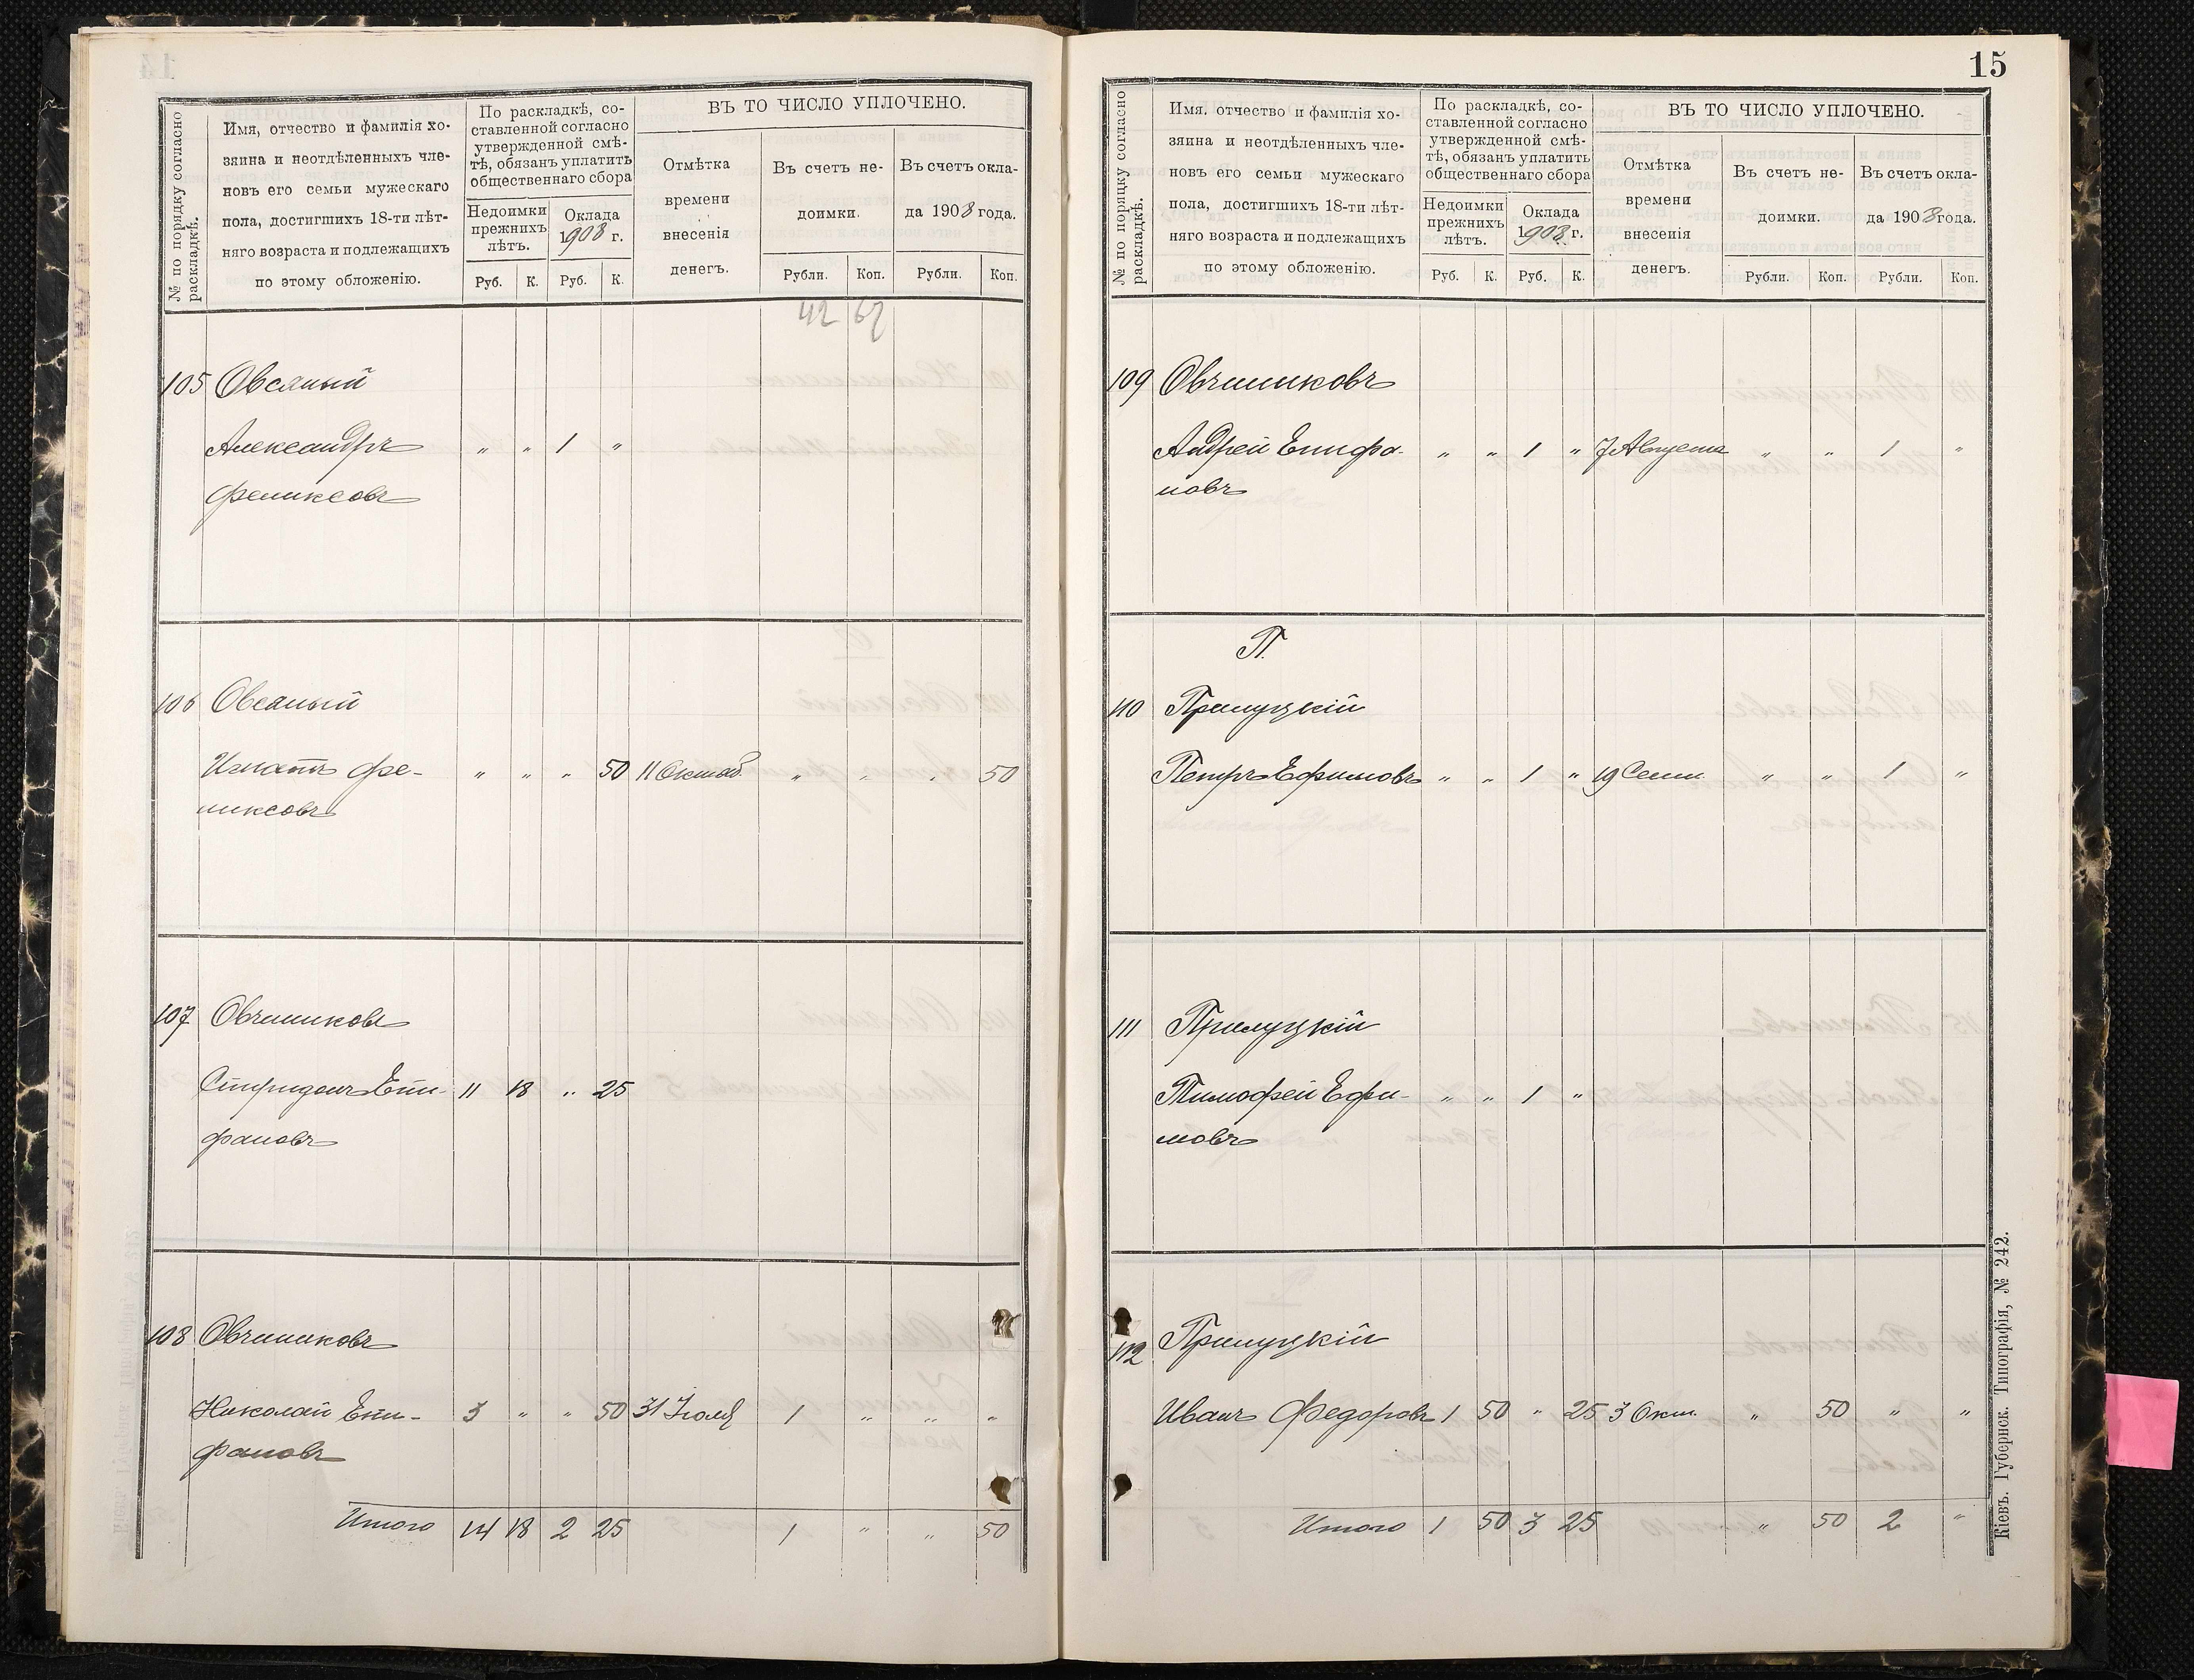 № по порядку согласно раскладкѣ.
Имя, отчество и фамилія хо-
зяина и неотдѣленныхъ чле-
новъ его семьи мужескаго
пола, достигшихъ 18-ти лѣт-
няго возраста и подлежащихъ
по этому обложенію.
По раскладкѣ, со-
ставленной согласно
утвержденной смѣ-
тѣ, обязанъ уплатить
общественнаго сбора
Недоимки прежнихъ лѣтъ.
Оклада 1908 г.
Руб. К. Руб. К.
ВЪ ТО ЧИСЛО УПЛОЧЕНО.
Отмѣтка времени внесенія денегъ.
Въ счетъ не-
доимки.
Въ счетъ окла-
да 1908 года.
Рубли. Коп. Рубли. Коп.
42 67
105 Овсяный
Александръ " " 1 "
Феликсовъ
106 Овсяный
Игнатъ Фе- " " " 50 11 Октяб. " " " 50
ликсовъ
107 Овчинниковъ
Спиридонъ Епи- 11 18 " 25
фановъ
108 Овчинниковъ
Николай Епи- 3 " " 50 31 Іюля 1 " " "
фановъ
Итого 14 18 2 25 1 " " 50
15
№ по порядку согласно раскладкѣ.
Имя, отчество и фамилія хо-
зяина и неотдѣленныхъ чле-
новъ его семьи мужескаго
пола, достигшихъ 18-ти лѣт-
няго возраста и подлежащихъ
по этому обложенію.
По раскладкѣ, со-
ставленной согласно
утвержденной смѣ-
тѣ, обязанъ уплатить
общественнаго сбора
Недоимки прежнихъ лѣтъ.
Оклада 1908 г.
Руб. К. Руб. К.
ВЪ ТО ЧИСЛО УПЛОЧЕНО.
Отмѣтка времени внесенія денегъ.
Въ счетъ не-
доимки.
Въ счетъ окла-
да 1908 года.
Рубли. Коп. Рубли. Коп.
109 Овчинниковъ
Андрей Епифа- " " 1 " 7 Августа " " 1 "
новъ
П.
110 Прилуцкій
Петръ Ефимовъ " " 1 " 19 Сент. " " 1 "
111 Прилуцкій
Тимофей Ефи- " " 1 "
мовъ
112 Прилуцкій
Иванъ Федоровъ 1 50 " 25 3 Окт. " 50 " "
Итого 1 50 3 25 " 50 2 "
Кіевъ. Губернск. Типографія, № 242.